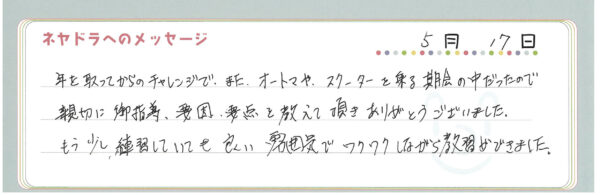 ネヤドラへのメッセージ
5月 17日
年を取ってからのチャレンジで、また、オートマや、スクーターを乗る期会の中だったので
親切に御指導、要因、要点を教えて頂きありがとうございました。
もう少し練習していても良い雰囲気でワクワクしながら教習ができました。